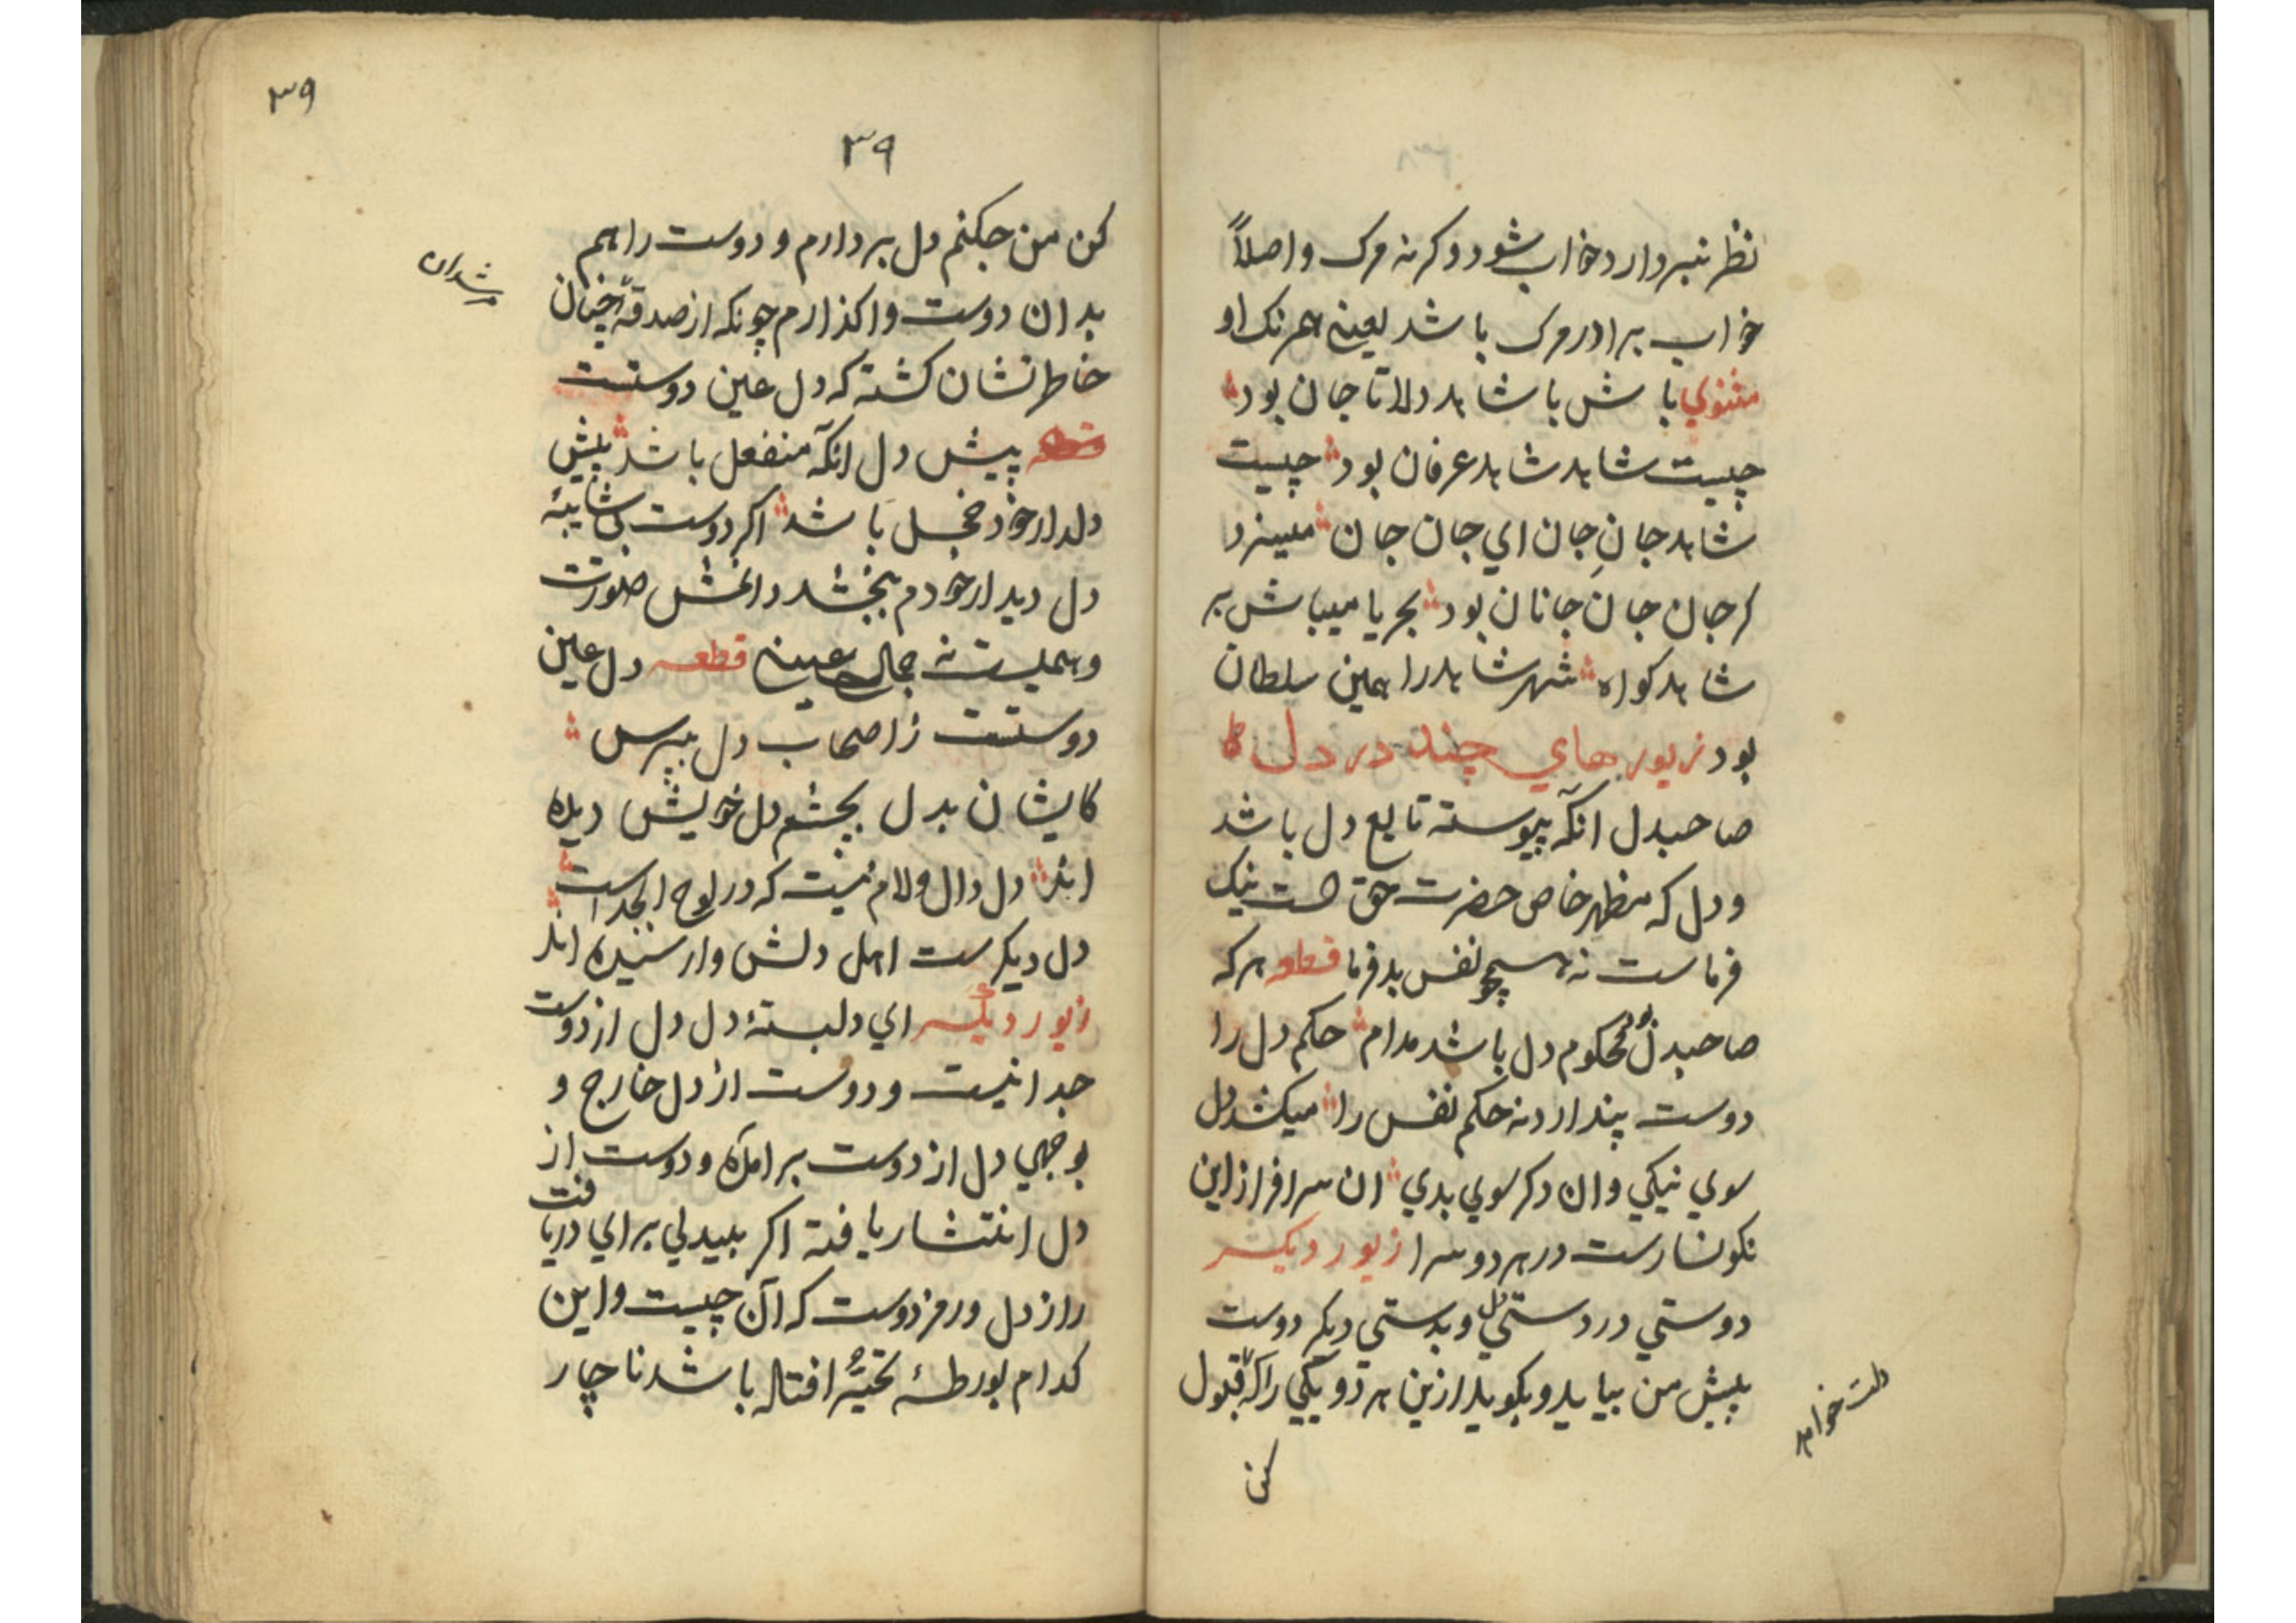 نظر نبردارد خواب شود وکرنه مرک واصلاً
خواب برادر مرک باشد یعینه همرنک او
مثنوي با ش با شاهد دلا تا جان بود
چیست شاهد شاهد عرفان بود چیست
شاهد جانِ جان اي جان جان میسزد
کر جان جان جانان بود بحر یا میباش بر
شاهد کواه شهر شاهد را همین سلطان
بود زیورهاي چند در دل
صاحبدل انکه پیوسته تابع دل باشد
ودل که مظهر خاص حضرت حق است نیک
فرماست نه همچو نفس بدفرما قطعه هرکه
صاحبدل بود محکوم دل باشد مدام حکم دل را
دوست پندارد نه حکم نفس را میکشد دل
سوي نیکي وان دکر سوي بدي ان سرافراز این
نکونسارست در هر دو سرا زیور دیکر
دوستي در دستي دل و بدستي دیکر دوست
پیش من بیاید و بکوید ازین هر دو یکي را که قبول
دلت خواهد
کن
۳۹
۳۹
کن من چکنم دل بردارم و دوست را هم
بدان دوست واکذارم چونکه از صدقهٔ چنان
مرشدان
خاطر نشان کشته که دل عین دوستت
قطعه پیش دل انکه منفعل باشد پیش
دلدار خود خجل باشد اکر دوست بی شایبهٔ
دل دیدار خودم بخشد دانمش صورت
وهمیست نه جمال عینے قطعه دل عین
دوستت ز اصحاب دل بپرس
کایشان بدل بچشم دل خویش دیده
اند دل دال ولام نیست که در لوح ابجدست
دل دیکرست اهل دلش وارسیده اند
زیور دیکر اي دلبستهٔ دل دل از دوست
جدا نیست و دوست از دل خارج و
بوجهي دل از دوست برامده و دوست از
دل انتشار یافته اکر بیدلي براي دریافت
راز دل و رمز دوست که آن چیست و این
کدام بورطهٔ تحیّر افتاده باشد ناچار